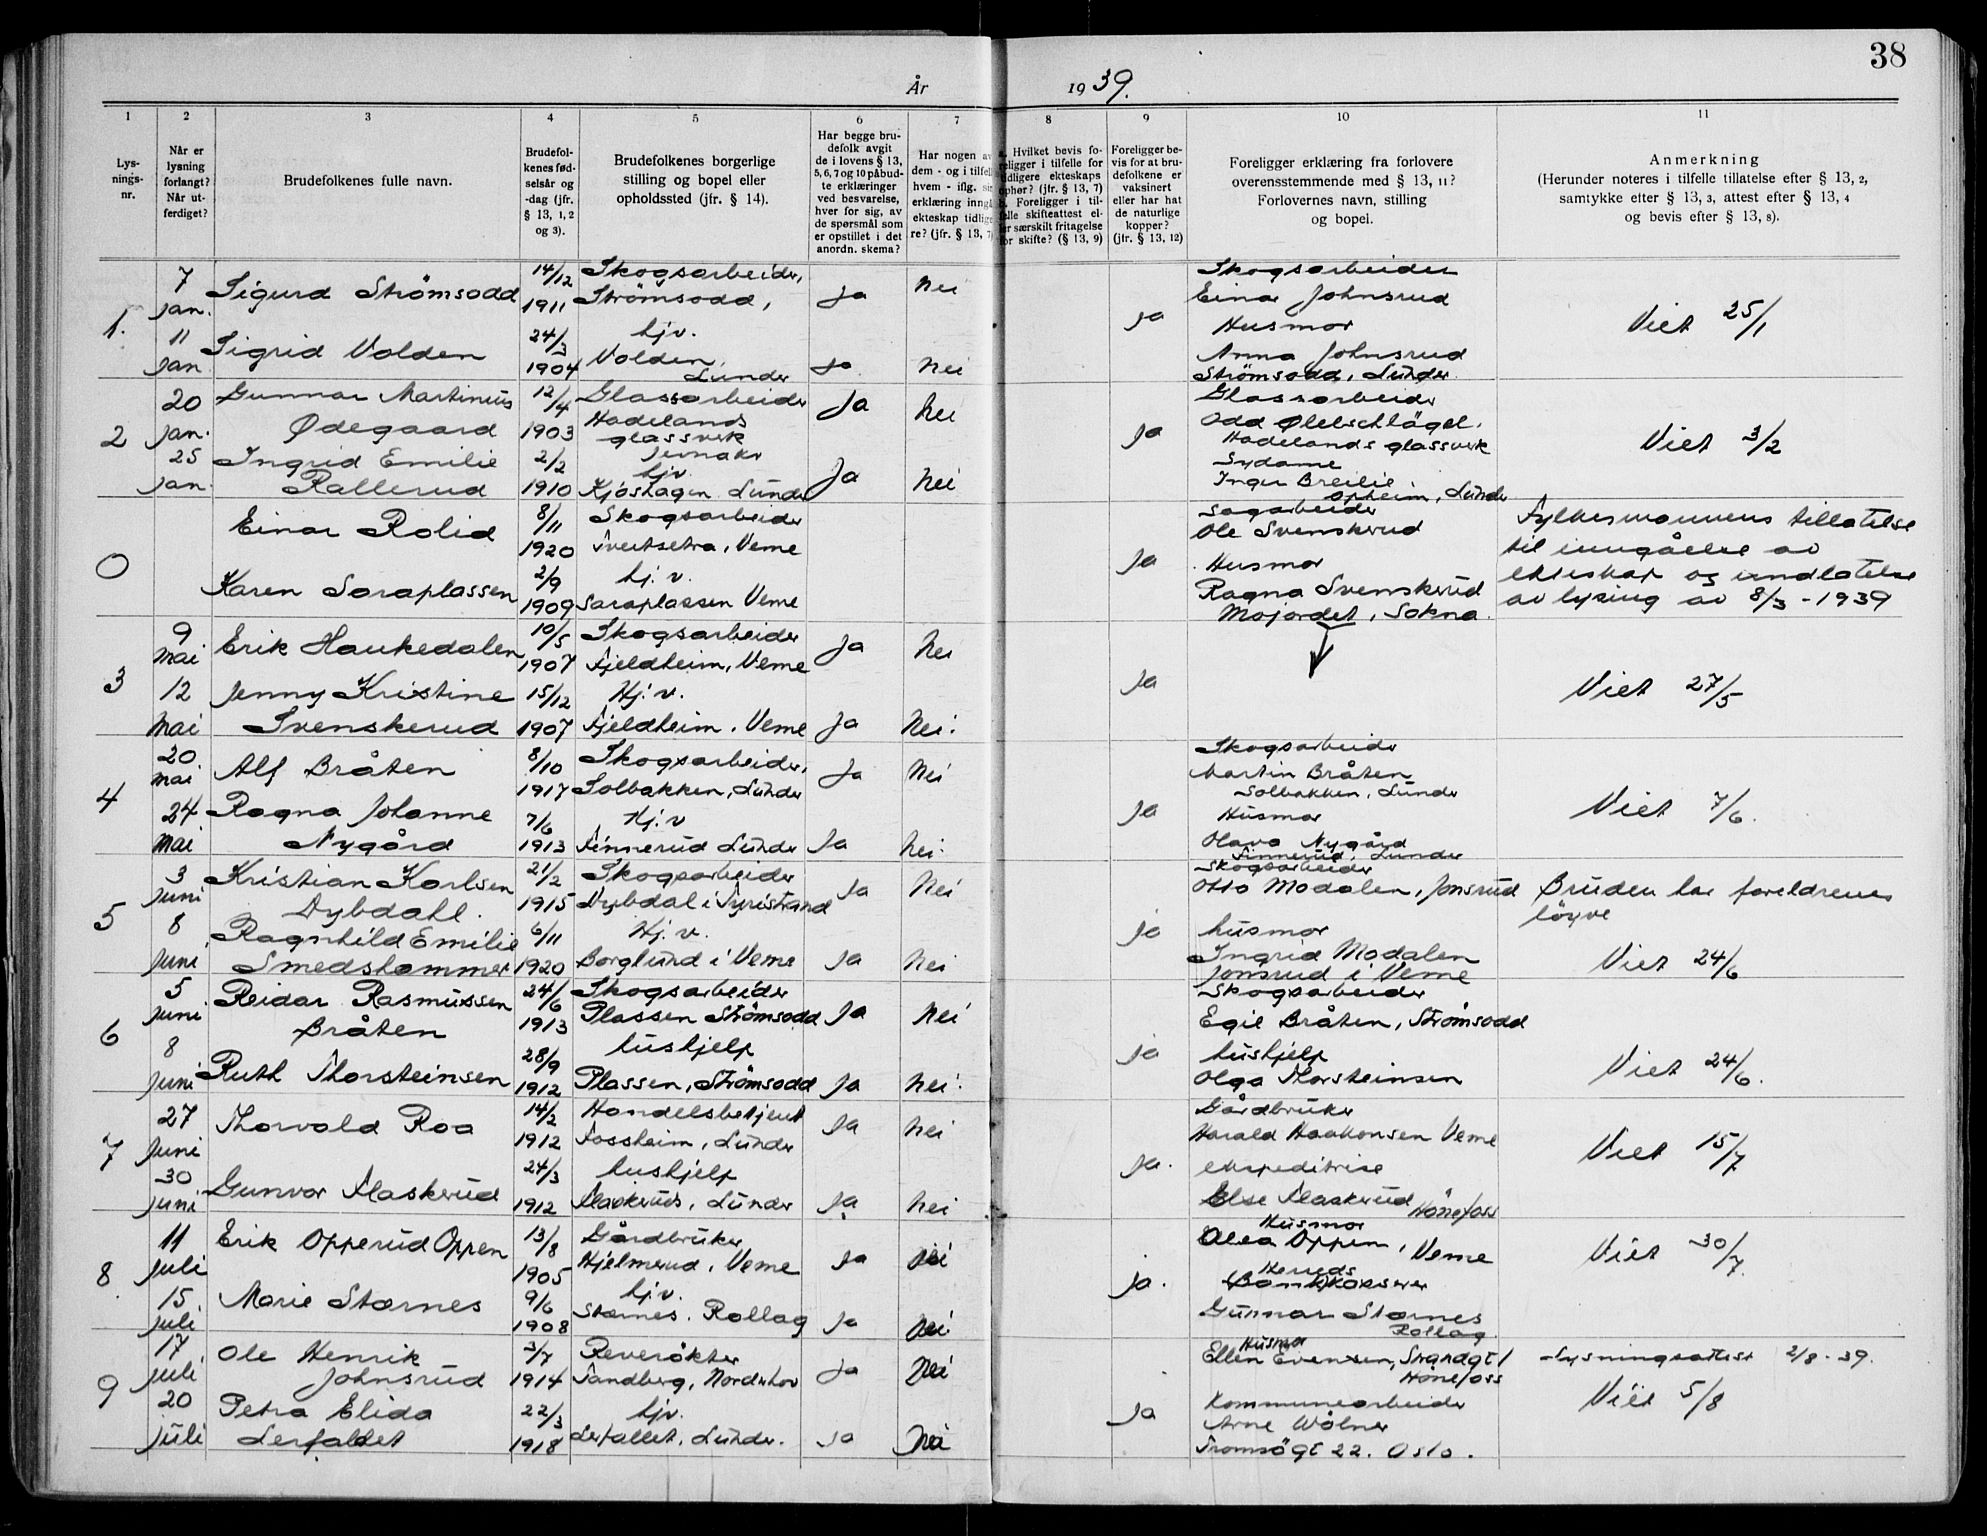 38
År 1939.
1 2 3 4 5 6 7 8 9 10 11
Lys-
nings-
nr.
Når er
lysning
forlangt?
Når ut-
ferdiget?
Brudefolkenes fulle navn.
Brudefol-
kenes fød-
selsår og
-dag (jfr.
§ 13, 1, 2
og 3).
Brudefolkenes borgerlige
stilling og bopel eller
opholdssted (jfr. § 14).
Har begge bru-
defolk avgit
de i lovens § 13,
5, 6, 7 og 10 påbud-
te erklæringer
ved besvarelse,
hver for sig, av
de spørsmål som
er opstillet i det
anordn. skema?
Har nogen av
dem - og i tilfelle
hvem - iflg. sin
erklæring inngått
ekteskap tidlige-
re? (jfr. § 13, 7)
Hvilket bevis fo-
religger i tilfelle for
tidligere ekteskaps
ophør? (jfr. § 13, 7)
Foreligger i til-
felle skifteattest el-
ler særskilt fritagelse
for skifte? (§ 13, 9)
Foreligger be-
vis for at bru-
defolkene er
vaksinert
eller har hat
de naturlige
kopper?
(jfr. § 13, 12)
Foreligger erklæring fra forlovere
overensstemmende med § 13, 11?
Forlovernes navn, stilling
og bopel.
Anmerkning
(Herunder noteres i tilfelle tillatelse efter § 13, 2,
samtykke efter § 13, 3, attest efter § 13, 4
og bevis efter § 13, 8).
1.
7
jan.
Sigurd Strömsodd
14/12
1911
Skogsarbeider,
Strömsodd,
Ja
Nei
11
jan
Sigrid Volden
24/3
1904
hjv.
Volden,
Lunder
Ja
Nei
Ja
Skogsarbeider
Einar Johnsrud
Husmor
Anna Johnsrud
Strömsodd, Lunder.
Viet 25/1
2
20
jan.
Gunnar Martinius
Ødegaard
12/4
1903
Glassarbeider
Hadelands
glassverk
Jevnaker
Ja
Nei
25
jan.
Ingrid Emilie
Rallerud
2/2
1910
hjv.
Kjöshagen Lunder
Ja
Nei
Ja
Glassarbeider
Odd Ølelschlägel.
Hadelands glassverk
Sydame
Inger Breilie
Opheim, Lunder
Viet 3/2
0
Einar Rolid
8/11
1920
Skogsarbeider
Tveitsetra, Veme
Karen Saraplassen
2/9
1909
hj. v.
Saraplassen Veme
Ja
Sagarbeider
Ole Svenskerud
Husmor
Ragna Svenskerud
Mojordet, Sokna.
Fylkesmannens tillatelse
til inngåelse av
ekteskap og undlatelse
av lysing av 8/3 - 1939
3
9
mai
Erik Haukedalen
10/5
1907
Skogsarbeider
Fjeldheim, Veme
Ja
Nei
12
mai
Jenny Kristine
Svenskerud
15/12
1907
Hj. v.
Fjeldheim, Veme
Ja
Nei.
Ja
Viet 27/5
4
20
mai
Alf Bråten
8/10
1917
Skogsarbeider,
Solbakken, Lunder
Ja
Nei
24
mai
Ragna Johanne
Nygård
7/6
1913
Hj. v
Finnerud Lunder
Ja
Nei.
Ja
Skogsarbeider
Martin Bråten
Solbakken, Lunder
Husmor
Olava Nygård
Finnerud, Lunder
Viet 7/6.
5
3
juni
Kristian Karlsen
Dybdahl.
21/2
1915
Skogsarbeider
Dybdal i Tyristrand
Ja
Nei
8
juni
Ragnhild Emilie
Smedshammer
6/11
1920
Hj. v.
Borglund i Veme
Ja
Nei
ja
Skogsarbeider
Otto Modalen, Jonsrud
husmor
Ingrid Modalen
Jonsrud i Veme
Bruden har foreldrenes
löyve
Viet 24/6
6
5
juni
Reidar Rasmussen
Bråten
24/6
1913
Skogsarbeider
Plassen Strömsodd
Ja
Nei
8
juni
Ruth Thorsteinsen
28/9
1912
hushjelp
Plassen, Strömsodd
Ja
Nei.
ja
Skogsarbeider
Egil Bråten, Strömsodd
hushjelp
Olga Thorsteinsen
Viet 24/6.
7
27
Juni
Thorvald Roa
14/2
1912
Handelsbetjent
Fossheim, Lunder
Ja
Nei
30
juni
Gunvor Flaskerud
24/3
1912
hushjelp
Flaskerud, Lunder
Ja
Nei
Ja.
Gårdbruker
Harald Haakonsen Veme
ekspeditrise
Else Flaskerud
Hönefoss
Viet 15/7
8
11
juli
Erik Opperud Oppen
13/8
1905
Gårdbruker
Hjelmerud, Veme
Ja
Nei
15
juli
Marie Stærnes
9/6
1908
hjv.
Stærnes. Rollag
Ja
Nei
Ja.
Husmor
Olea Oppen, Veme
Herreds
(Bank)kasserer
Gunnar Stærnes
Rollag.
Viet 30/7.
9
17
juli
Ole Henrik
Johnsrud
3/7
1914
Reverökter
Sandberg, Norderhov
Ja
Nei
20
juli
Petra Elida
Lerfaldet
22/3
1918
hjv.
Lerfallet, Lunder.
Ja
Nei
Ja
Husmor
Ellen Evensen, Strandgt 1
Hönefoss
Kommunearbeider
Arne Wölner
Tromsögt 22. Oslo.
Lysningsattest 2/8 - 39.
Viet 5/8